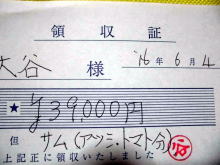 領収証
大谷 様 '16年6月4
★ ¥39,000円
但 サム(アツシ、トマト分)
上記正に領収いたしました